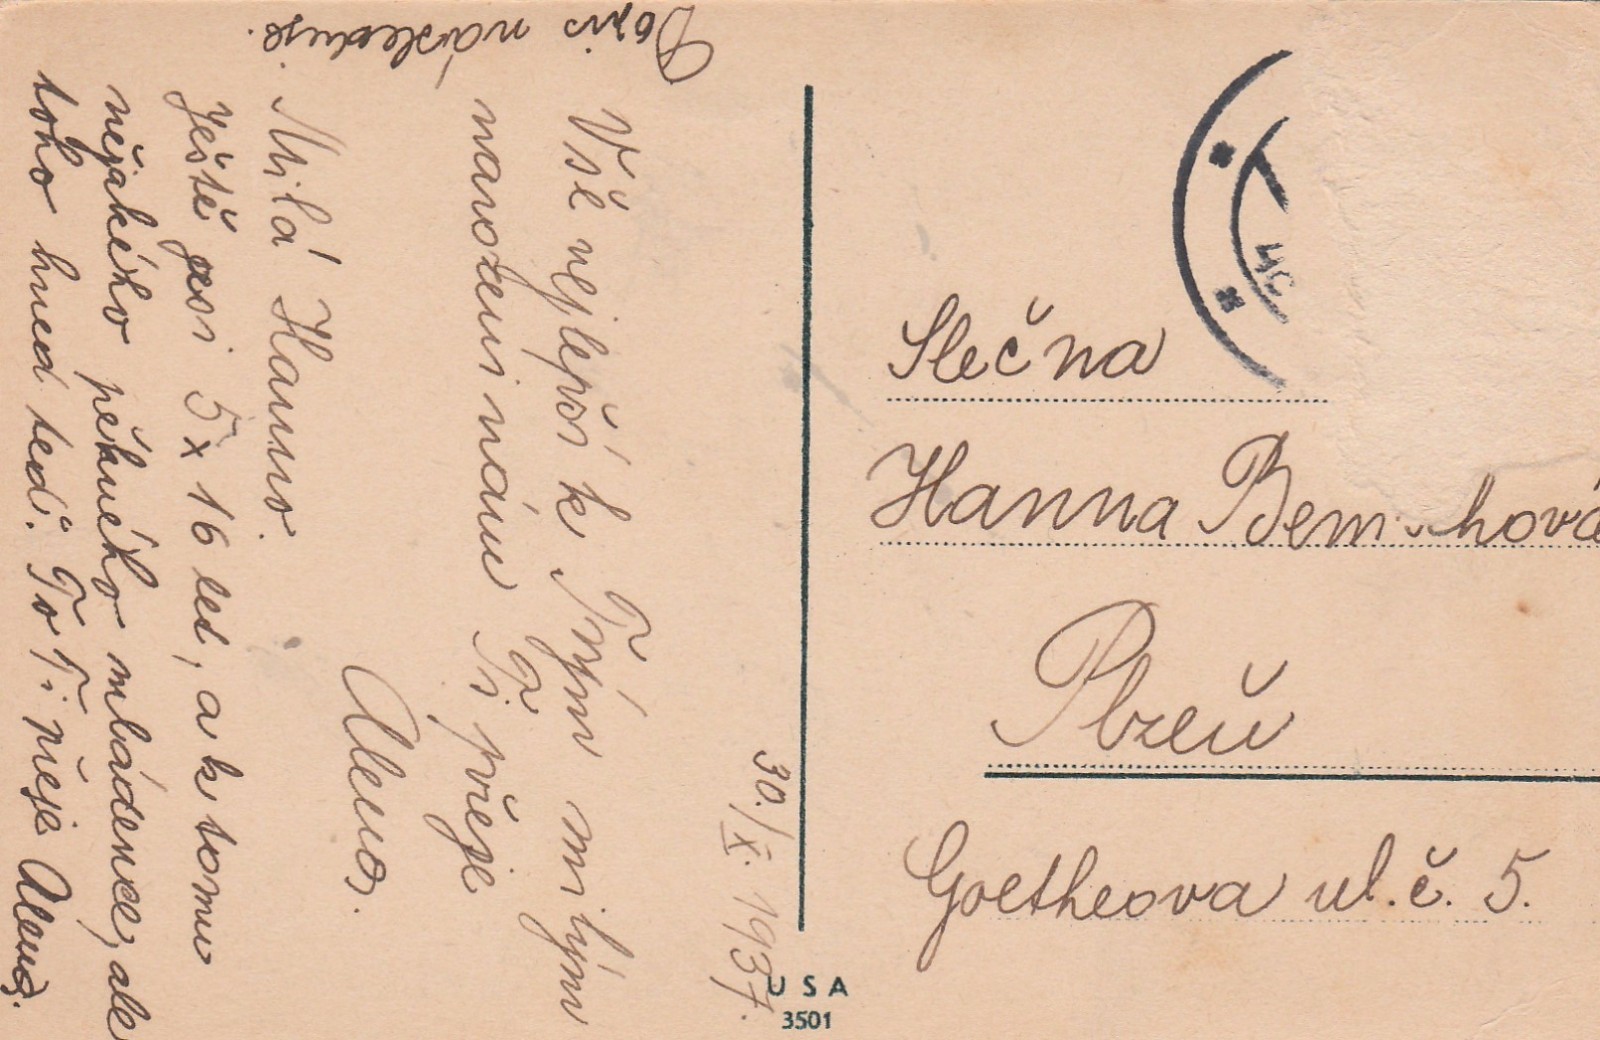 Dopis následuje.
Vše nejlepší k Tvým milým
narozeninám Ti přeje
Alena.
Milá Hanno.
Ještě jesi 5x 16 let, a k tomu
nějakého pěkného mládence, ale
toho hned teď. To Ti přeje Alena.
30./X. 1937.
Slečna
Hanna
Plzeň
Goetheova ul. č. 5.
USA
3501